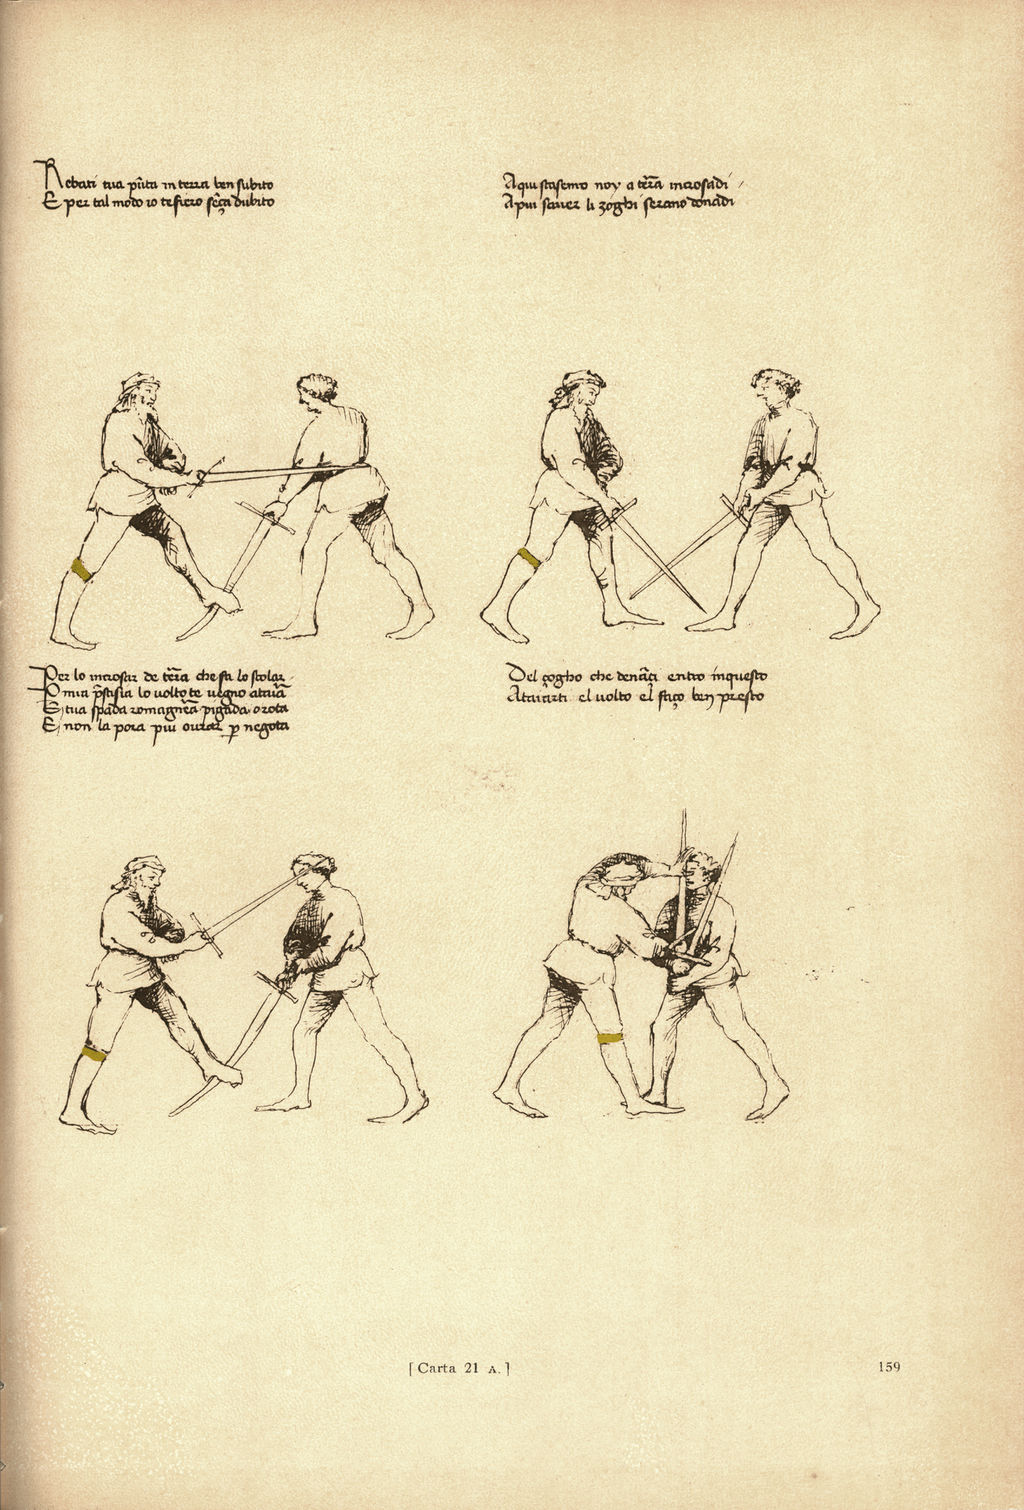 Rebati tua pũta in terra ben subito
E per tal modo io te fiero sẽça dubito
Aqui stasemo noy a tẽra incrosadi /
A piu saver li zoghi serano donadi
Per lo incrosar de tẽra che fa lo scolar
P mia p̃stisia lo volto te vegno a taiã
E tua spada romagnẽa pigada o rota
E non la pora piu ovrar p negota
Del çogho che denãci entro in questo
A taiarti el volto el faço ben presto
[Carta 21 A.]
159